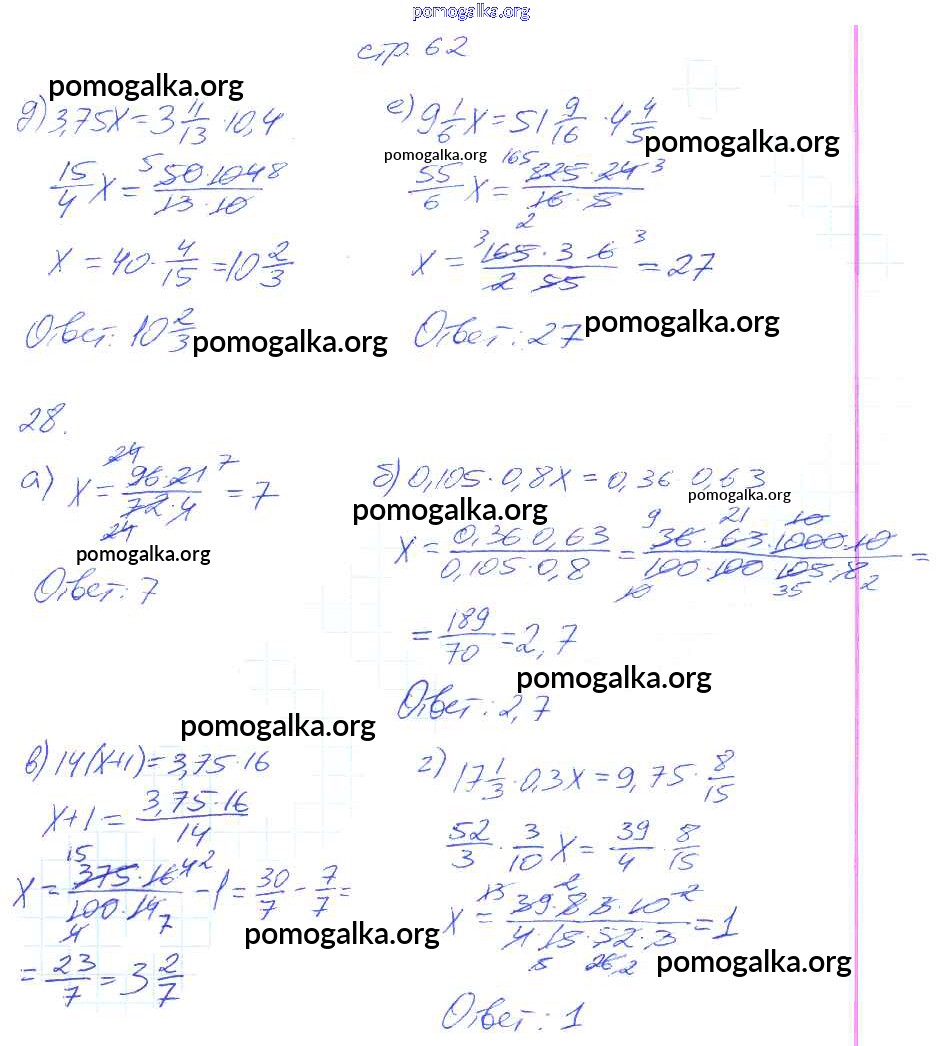 pomogalka.org
стр. 62
pomogalka.org
д) 3,75x = 3 11/13 · 10,4
15/4 x = 5 50·104 8 / 13·10
x = 40 · 4/15 = 10 2/3
Ответ: 10 2/3
pomogalka.org
е) 9 1/6 x = 51 9/16 · 4 4/5
pomogalka.org
pomogalka.org
55/6 x = 165 825·24 3 / 16·5 2
x = 3 165·3 6 3 / 2 55 = 27
Ответ: 27
pomogalka.org
28.
а) x = 24 96·21 7 / 72·4 24 = 7
pomogalka.org
Ответ: 7
б) 0,105·0,8x = 0,36 0,63
pomogalka.org
pomogalka.org
x = 0,36 0,63 / 0,105·0,8 = 9 21 10 36·63·1000·10 / 100·100·105·8 10 35 2 =
= 189/70 = 2,7
pomogalka.org
Ответ: 2,7
pomogalka.org
в) 14(x+1) = 3,75·16
x+1 = 3,75·16 / 14
x = 15 375·16 4 2 / 100·14 4 7 - 1 = 30/7 - 7/7 =
pomogalka.org
= 23/7 = 3 2/7
г) 17 1/3 · 0,3x = 9,75 · 8/15
52/3 · 3/10 x = 39/4 · 8/15
x = 13 2 39·8 3·10 2 / 4·15·52·3 5 26 2 = 1
pomogalka.org
Ответ: 1